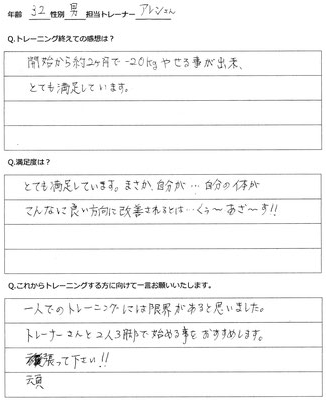 年齢 32 性別 男 担当トレーナー アレンさん
Q.トレーニング終えての感想は？
開始から約2ヶ月で-20kgやせる事が出来、
とても満足しています。
Q.満足度は？
とても満足しています。まさか、自分が…自分の体が
こんなに良い方向に改善されるとは…くぅ〜あざーす!!
Q.これからトレーニングする方に向けて一言お願いいたします。
一人でのトレーニングには限界があると思いました。
トレーナーさんと2人3脚で始める事をおすすめします。
張って下さい!!
頑